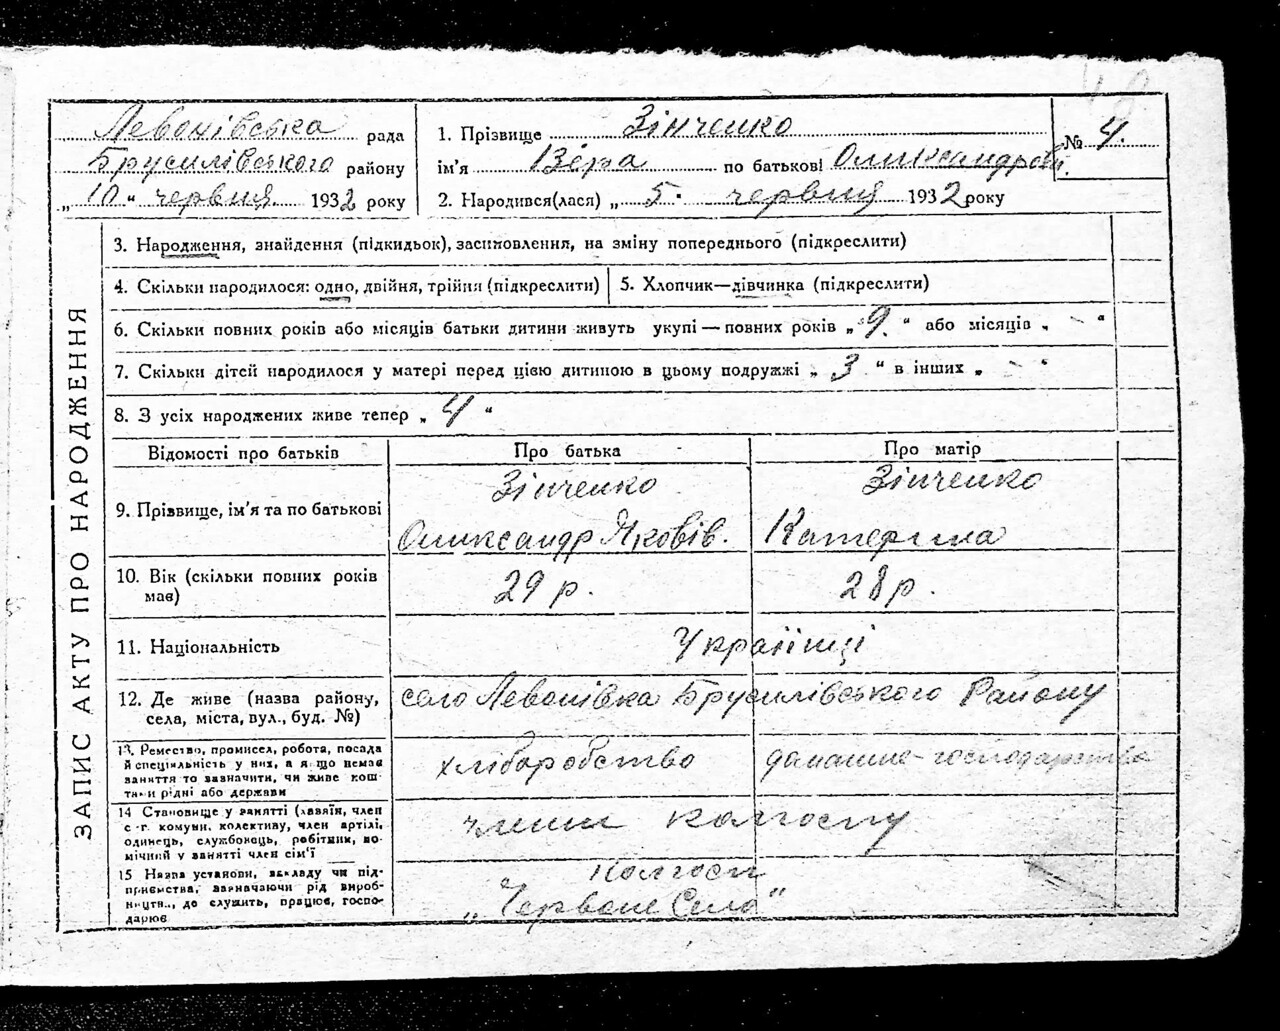 Левонівська рада
Брусилівського району
„ 10 " червня 1932 року
1. Прізвище Зінченко
ім'я Віра по батькові Олександрові.
2. Народився(лася) „ 5. червня 1932 року
№ 4.
ЗАПИС АКТУ ПРО НАРОДЖЕННЯ
3. Народження, знайдення (підкидьок), засиновлення, на зміну попереднього (підкреслити)
4. Скільки народилося: одно, двійня, трійня (підкреслити)
5. Хлопчик—дівчинка (підкреслити)
6. Скільки повних років або місяців батьки дитини живуть укупі — повних років „ 9. " або місяців „ - "
7. Скільки дітей народилося у матері перед цією дитиною в цьому подружжі „ 3 " в інших „ - "
8. З усіх народжених живе тепер „ 4 "
Відомості про батьків
Про батька
Про матір
9. Прізвище, ім'я та по батькові
Зінченко
Олександр Яковів.
Зінченко
Катерина
10. Вік (скільки повних років
має)
29 р.
28 р.
11. Національність
Українці
12. Де живе (назва району,
села, міста, вул., буд. №)
село Левонівка Брусилівського Району
13. Ремество, промисел, робота, посада
й спеціяльність у них, а якщо немає
заняття то зазначити, чи живе кош-
тами рідні або держави
хліборобство
домашнє-господарство
14 Становище у занятті (хазяїн, член
с-г. комуни, колективу, член артілі,
одинець, службовець, робітник, по-
мічний у занятті член сім'ї
члени колгоспу
15 Назва установи, закладу чи під-
приємства, зазначаючи рід вироб-
ництв., де служить, працює, госпо-
дарює
Колгосп
„Червоне Село"